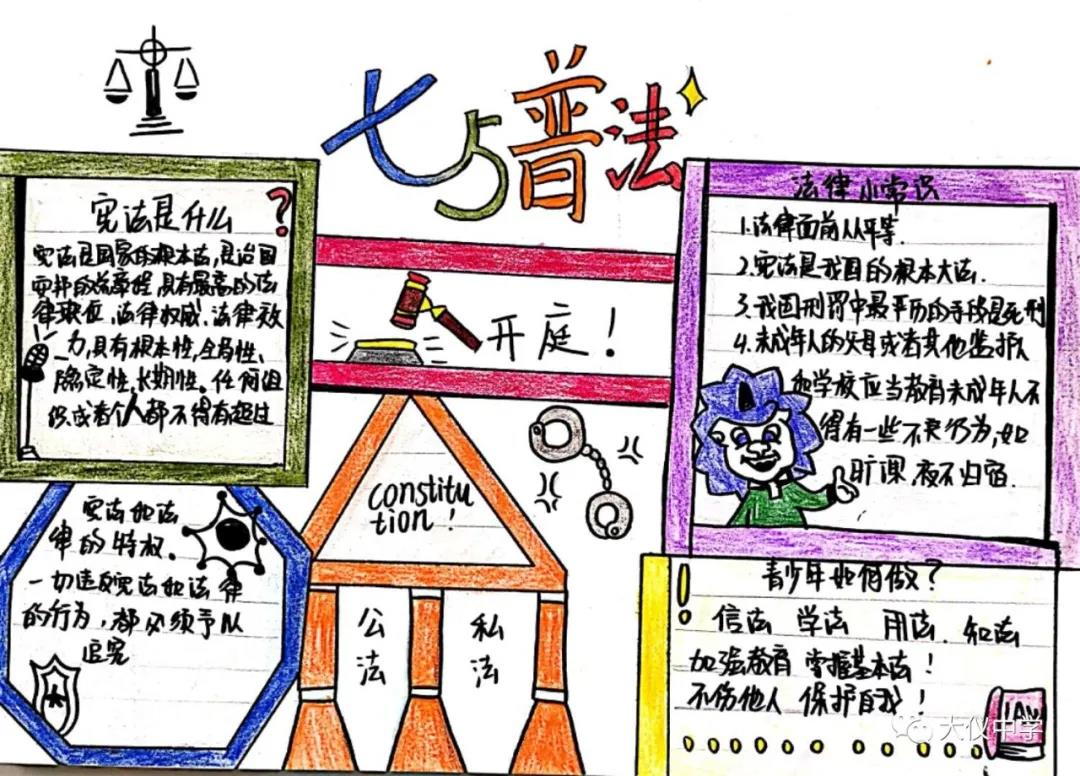 七五普法
宪法是什么?
宪法是国家的根本法,是治国
安邦的总章程,具有最高的法
律地位、法律权威、法律效
力,具有根本性、全局性、
稳定性、长期性。任何组
织或者个人都不得有超过
宪法和法
律的特权。
一切违反宪法和法律
的行为,都必须予以
追究
开庭!
constitu
tion!
公法
私法
法律小常识
1.法律面前人人平等.
2.宪法是我国的根本大法.
3.我国刑罚中最严厉的手段是死刑
4.未成年人的父母或者其他监护人
和学校应当教育未成年人不
得有一些不良行为,如
旷课、夜不归宿.
青少年如何做?
信法 学法 用法、知法
加强教育 掌握基本法!
不伤他人 保护自我!
LAW
大仪中学